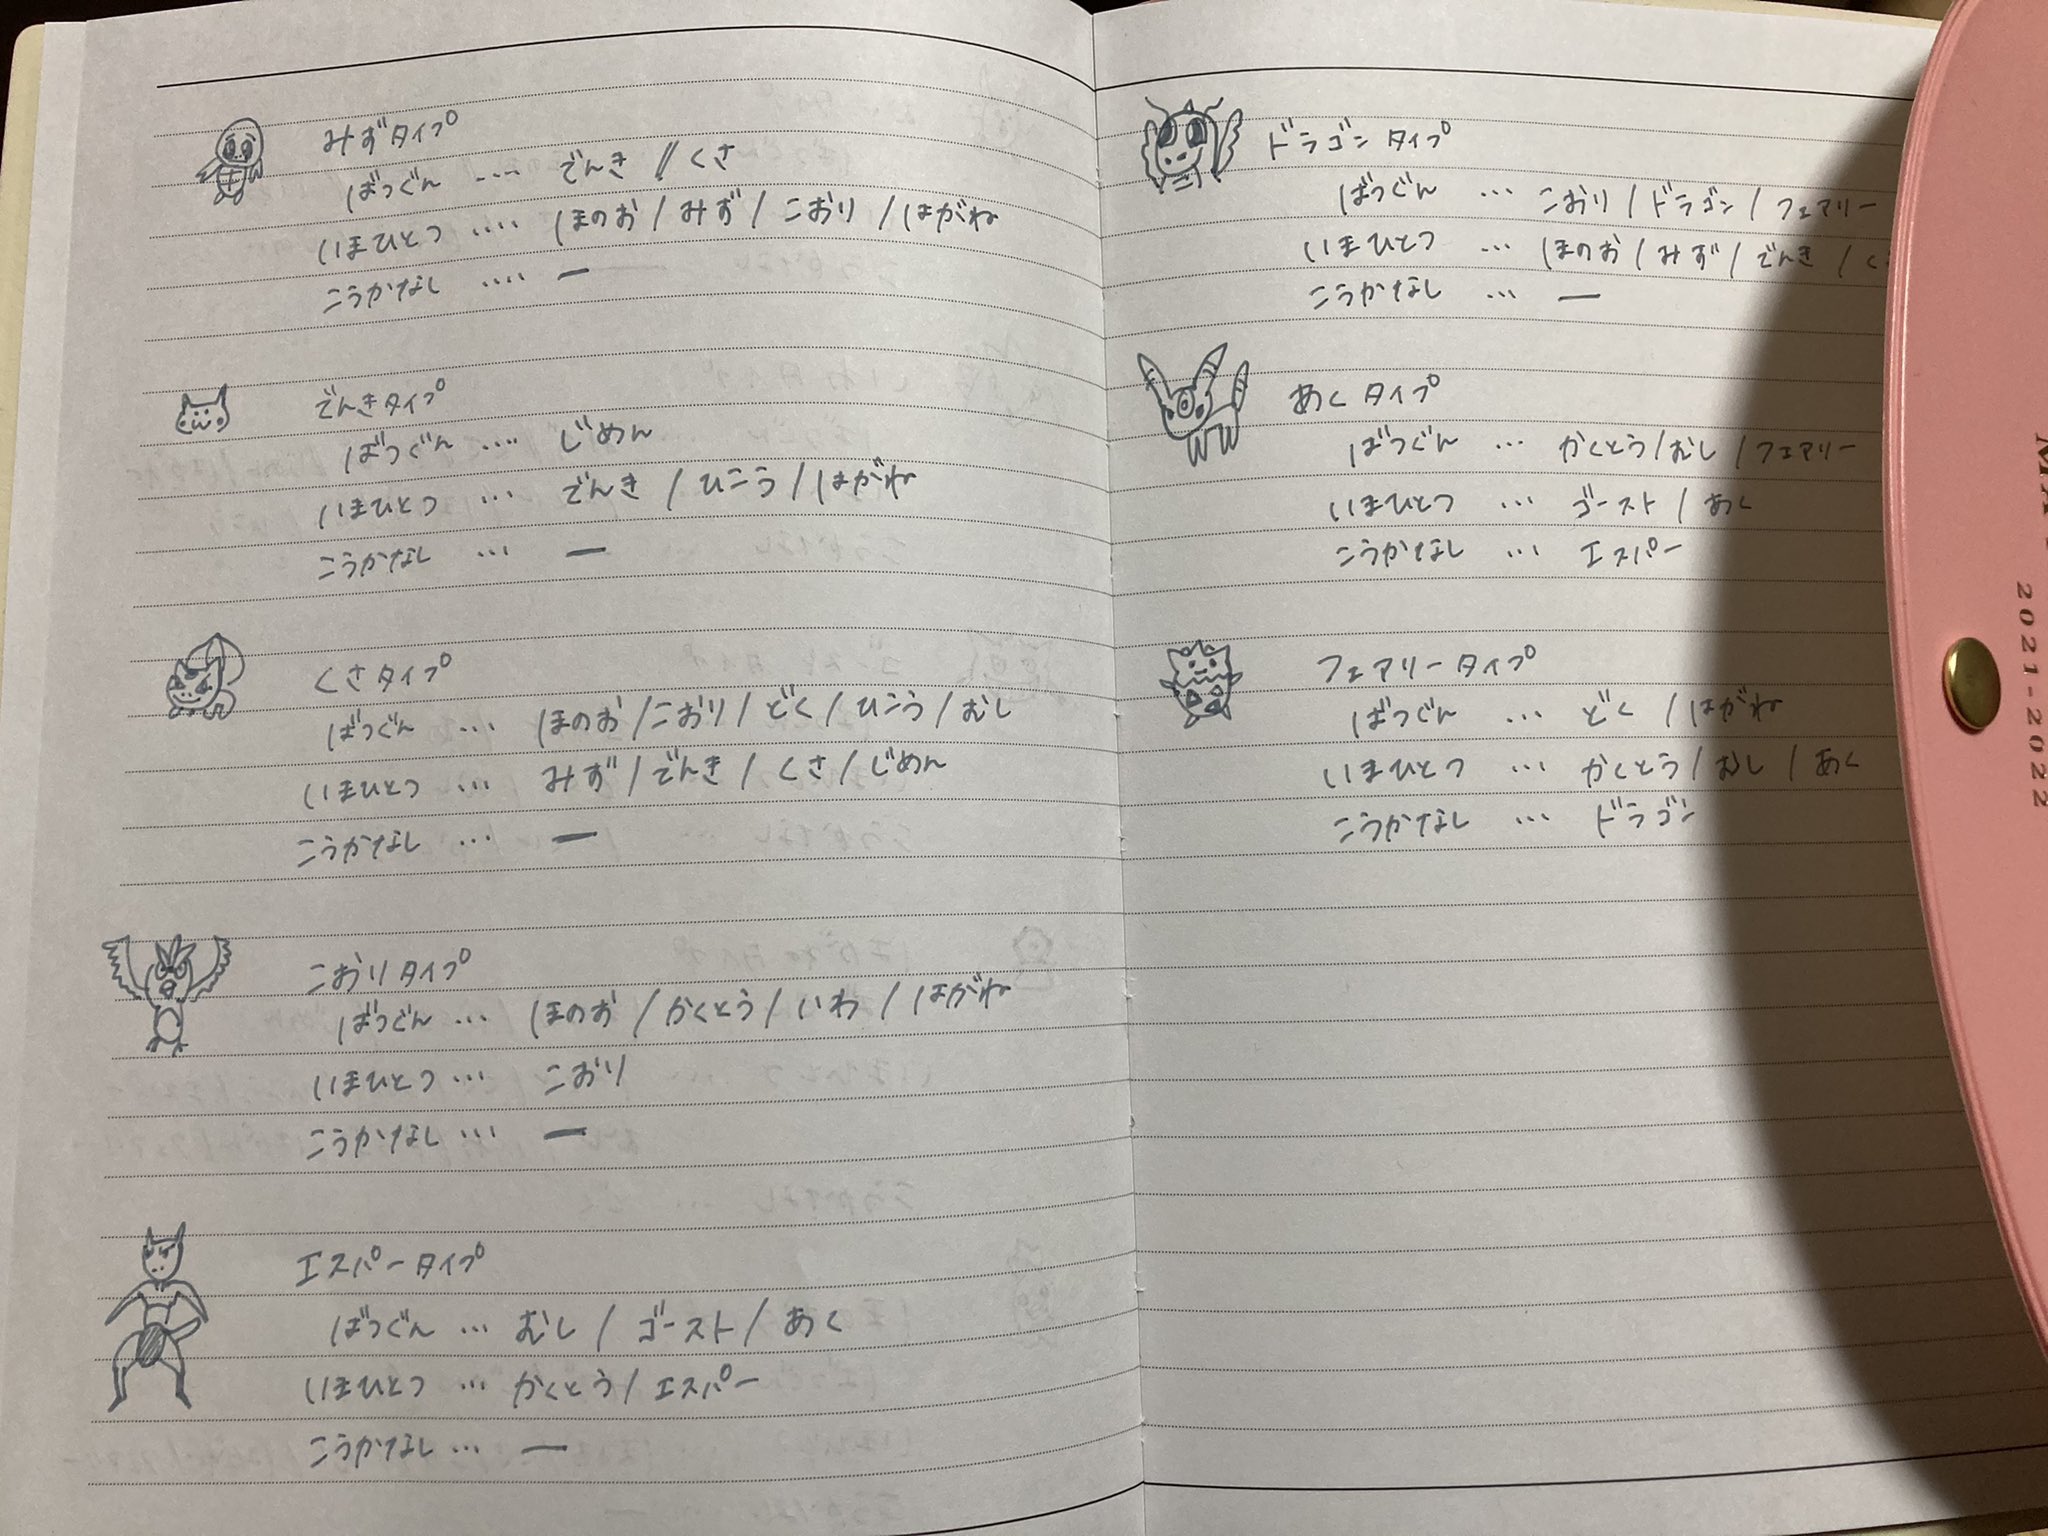 みずタイプ
ばつぐん ‥‥ でんき // くさ
いまひとつ ‥‥ ほのお / みず / こおり / はがね
こうかなし ‥‥ ー
でんきタイプ
ばつぐん ‥‥ じめん
いまひとつ … でんき / ひこう / はがね
こうかなし … ー
くさタイプ
ばつぐん … ほのお / こおり / どく / ひこう / むし
いまひとつ … みず / でんき / くさ / じめん
こうかなし … ー
こおりタイプ
ばつぐん … ほのお / かくとう / いわ / はがね
いまひとつ … こおり
こうかなし … ー
エスパータイプ
ばつぐん … むし / ゴースト / あく
いまひとつ … かくとう / エスパー
こうかなし … ー
ドラゴンタイプ
ばつぐん … こおり / ドラゴン / フェアリー
いまひとつ … ほのお / みず / でんき / く
こうかなし … ー
あくタイプ
ばつぐん … かくとう / むし / フェアリー
いまひとつ … ゴースト / あく
こうかなし … エスパー
フェアリータイプ
ばつぐん … どく / はがね
いまひとつ … かくとう / むし / あく
こうかなし … ドラゴン
2021-2022